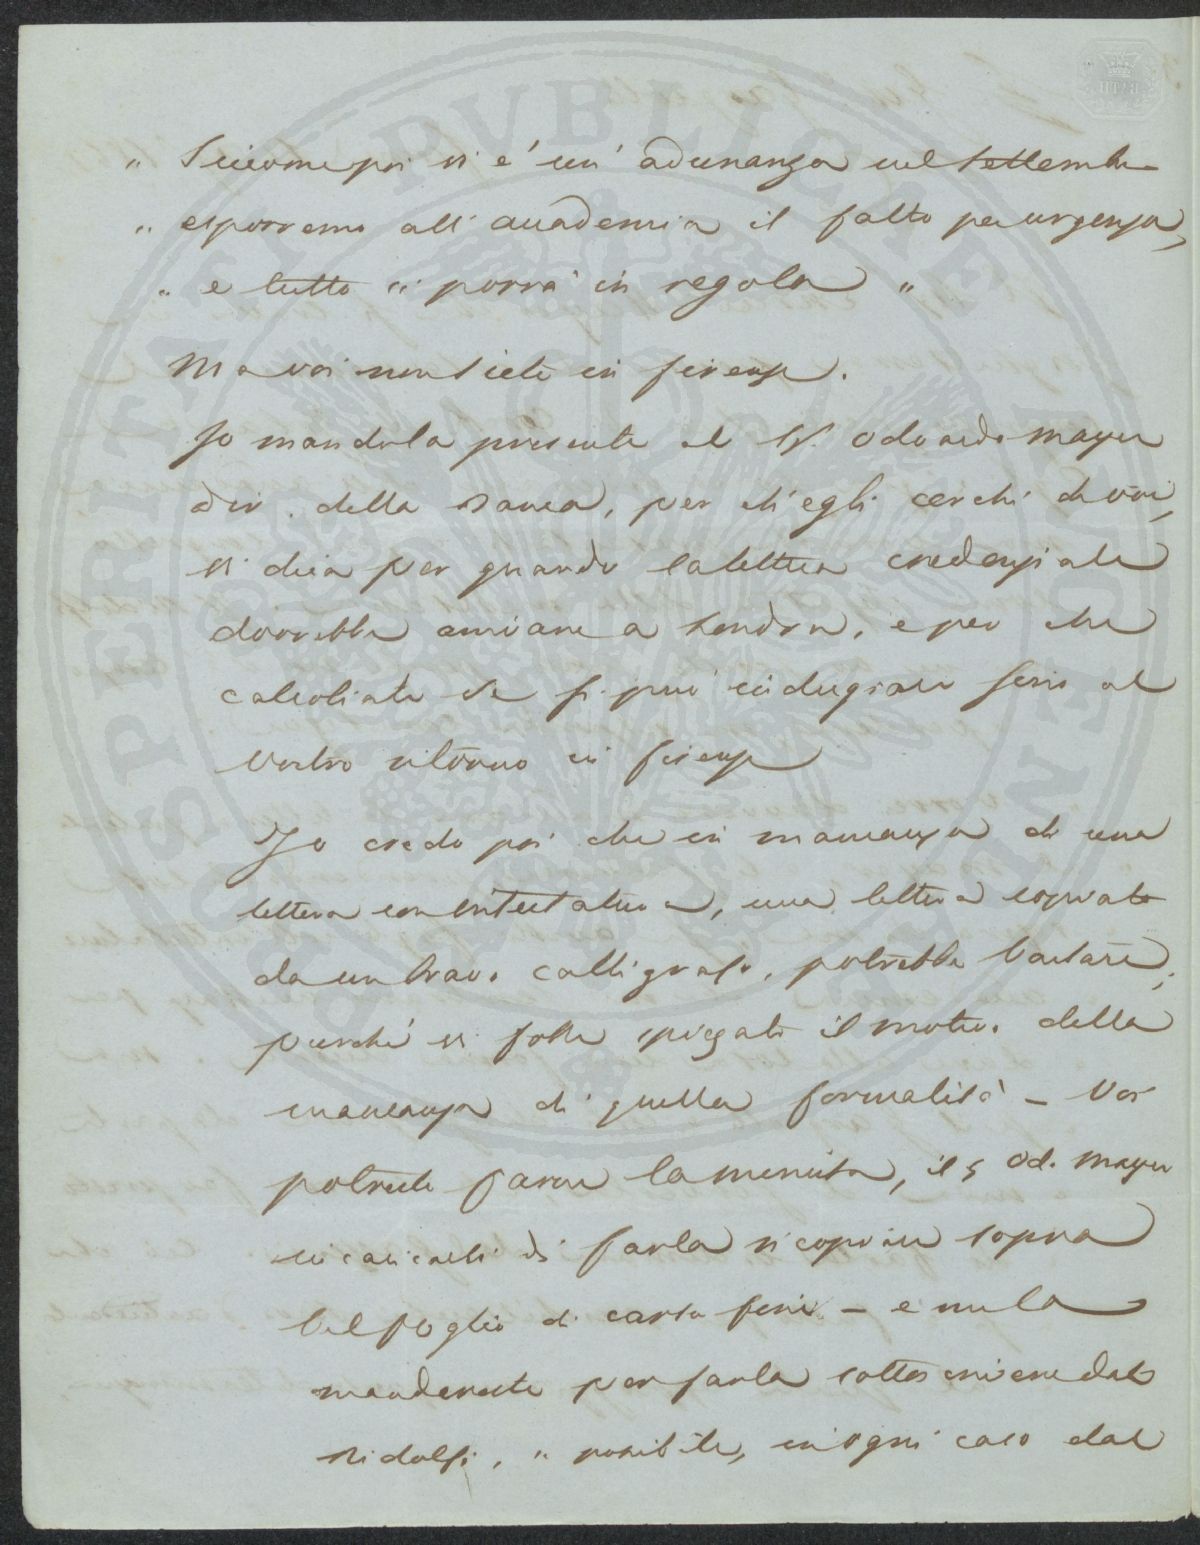 " Siccome poi vi e' un' adunanza nel settembre
" esporremo all' accademia il fatto per urgenza,
" e tutto si porrà in regola "
Ma voi non siete in firenze.
Io mando la presente al Sr. Odoardo Mayer
dir. della Banca, per ch'egli cerchi di voi,
vi dica per quando la lettera credenziale
dovrebbe arrivare a Londra, e per che
calcoliate se si può indugiare sino al
vostro ritorno in firenze
Io credo poi che in mancanza di una
lettera con intestatura, una lettera copiata
da un bravo calligrafo, potrebbe bastare,
purché vi fosse spiegato il motivo della
mancanza di quella formalità - Voi
potreste farne la minuta, il S Od. Mayer
incaricarsi di farla ricopiare sopra
bel foglio di carta fina - e me la
mandereste per farla sottoscrivere dal
Ridolfi, se possibile, in ogni caso dal
PROSPERITATI PVBLICAE AVGENDAE
BATH